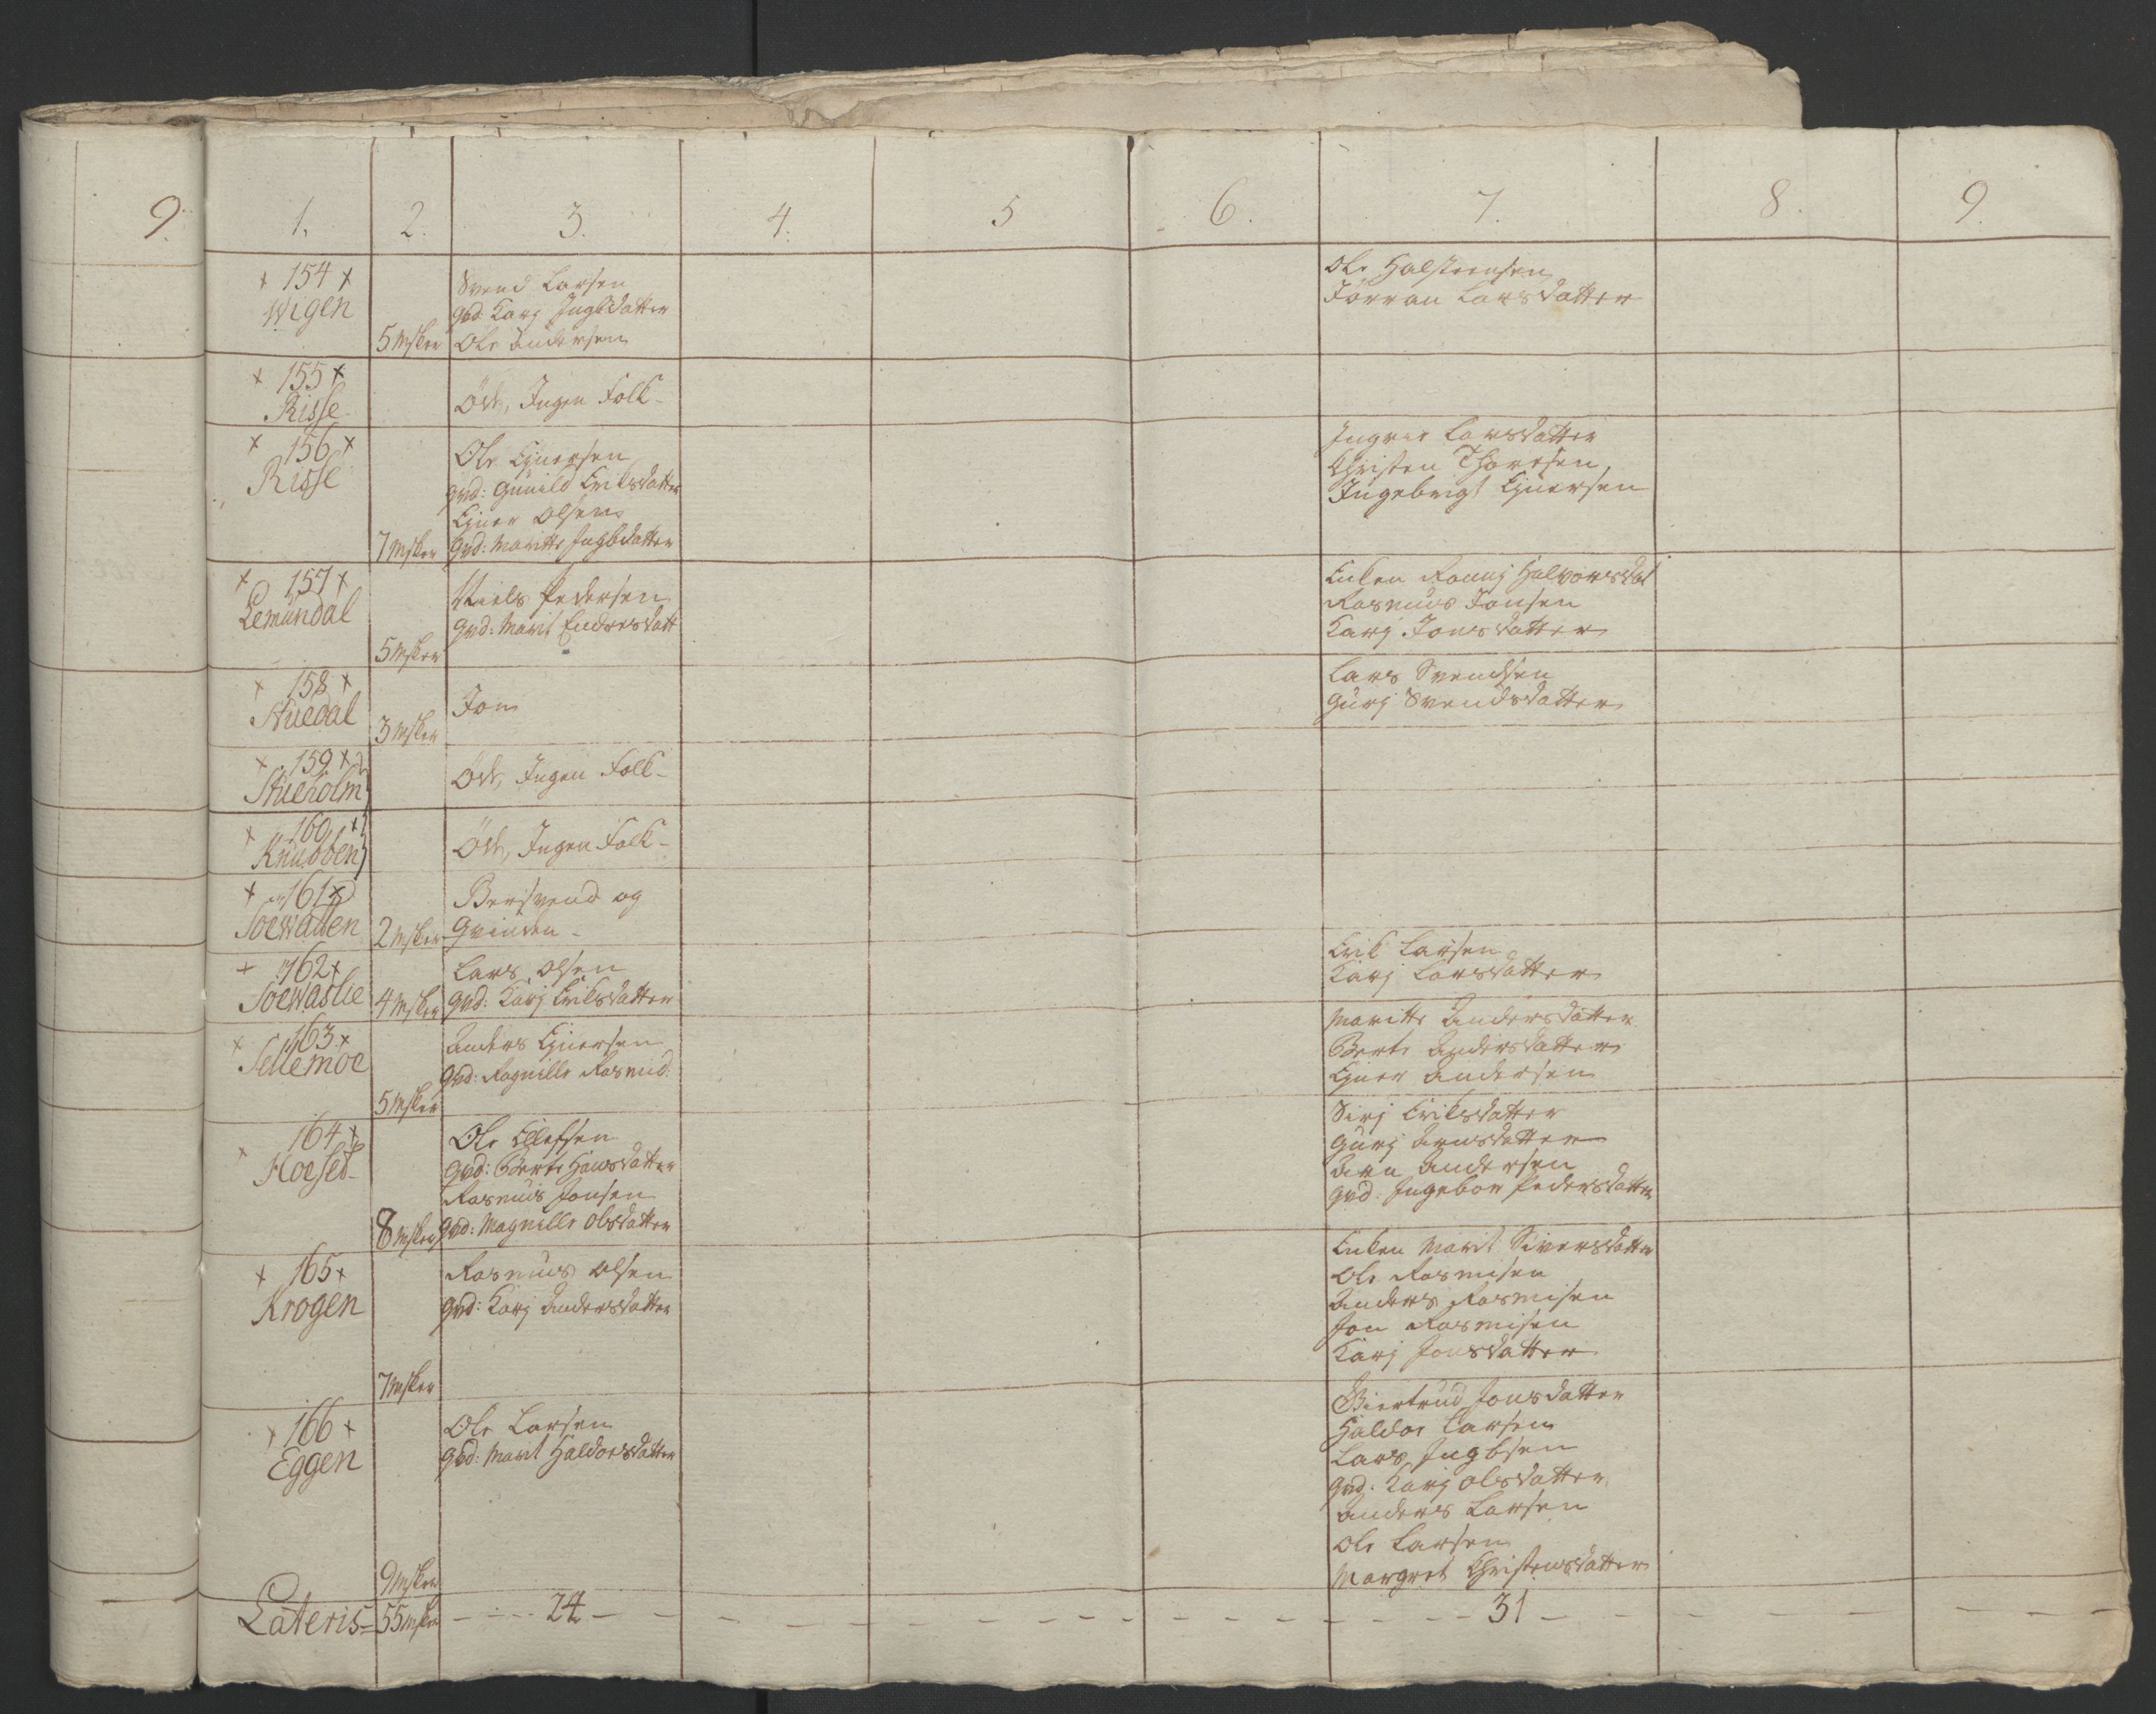 9.
1. 2. 3. 4. 5 6. 7. 8. 9.
+ 154 +
Wigen
5 Msker
Svend Larsen
qvd: Karj Ingbdatter
Ole Andersen
Ole Halsteensen
Jörran Larsdatter
+ 155 +
Risse
Öde, Ingen Folk-
+ 156 +
Risse
7 Msker
Ole Ejnersen
qvd: Gunild Eriksdatter
Ejner Olsen
qvd: Maritte Ingbdatter
Ingrie Larsdatter
Christen Thoresen,
Ingebrigt Ejnersen
+ 157 +
Lemundal
5 Msker
Niels Pedersen
qvd: Marit Endresdatt
Enken Ronnj Halvorsdat
Rasmus Jonsen
Karj Jonsdatter
+ 158 +
Stuedal
3 Msker
Jon
Lars Svendsen
Gurj Svendsdatter
+ 159 +
Stueholm
Öde, Ingen Folk-
+ 160 +
Knubben
Öde, Ingen Folk-
+ 161 +
Soewatten
2 Msker
Bersvend og
Qvinden -
+ 162 +
Soewaslie
4 Msker
Lars Olsen
qvd: Karj Eriksdatter
Erik Larsen
Karj Larsdatter
+ 163 +
Sellemoe
5 Msker
Anders Ejnersen
qvd: Ragnille Rasmusd:
Maritte Andersdatter
Berte Andersdatter
Ejner Andersen
+ 164 +
Hoesed-
8 Msker
Ole Ellefsen
qvd: Berte Hansdatter
Rasmus Jonsen
qvd: Magnille Olsdatter
Sirj Eriksdatter
Gurj Arnsdatter
Arn Andersen
qvd: Ingebor Pedersdatter
+ 165 +
Krogen
7 Msker
Rasmus Olsen
qvd: Karj Andersdatter
Enken Marit Siversdatter
Ole Rasmisen
Anders Rasmisen
Jon Rasmisen
Karj Jonsdatter
+ 166 +
Eggen
9 Msker
Ole Larsen
qvd: Marit Haldorsdatter
Giertrud Jonsdatter
Haldor Larsen
Lars Ingbsen
qvd: Karj Olsdatter
Anders Larsen
Ole Larsen
Margret Christensdatter
Lateris = 55 Msker - - - 24 - - - 31 - -